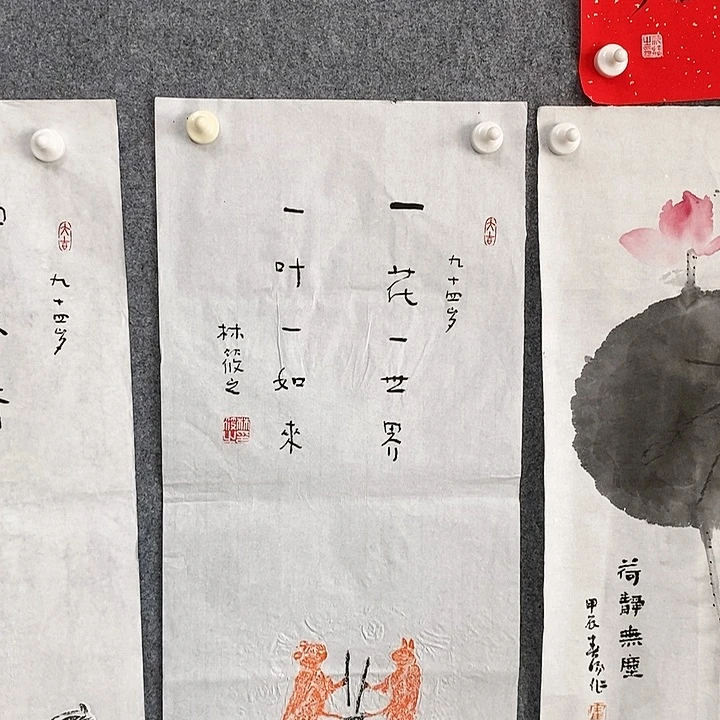 大吉
九十四岁
一花一世界
一叶一如來
林筱之
大吉
九十四岁
荷靜無塵
甲辰